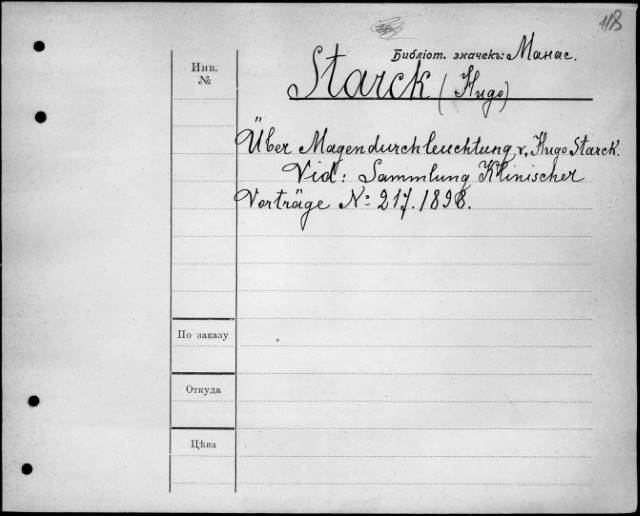 118
Библіот. значекъ: Манас.
Инв.
№
Starck (Hugo)
Über Magendurchleuchtung v. Hugo Starck.
Vid: Sammlung Klinischer
Vorträge № 217. 1898.
По заказу
Откуда
Цѣна